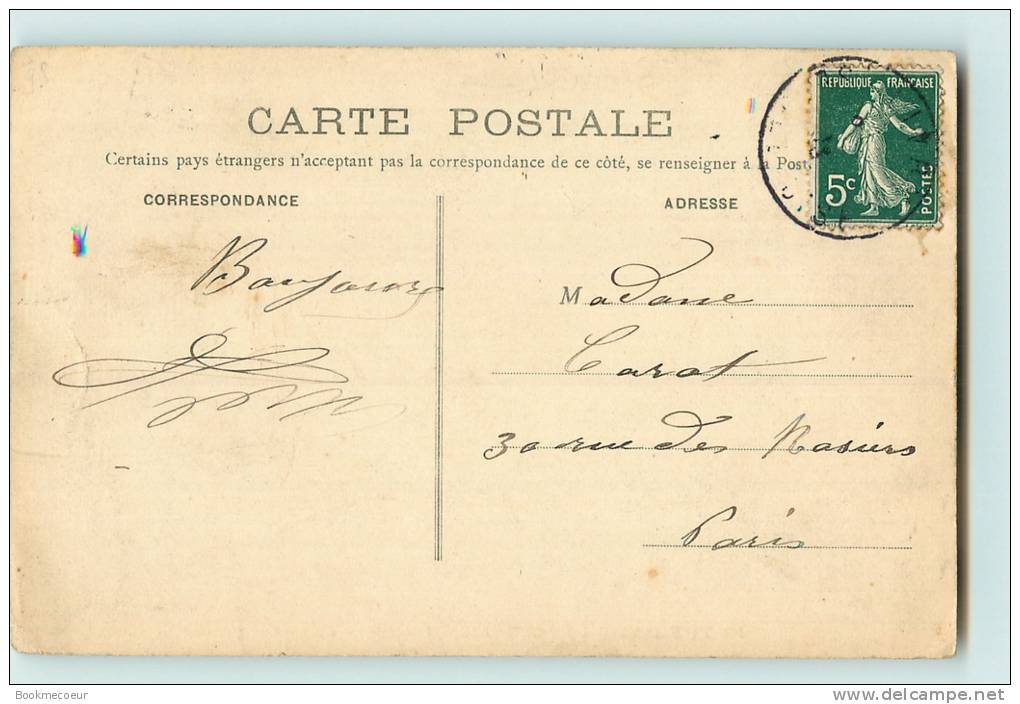 CARTE POSTALE
Certains pays étrangers n'acceptant pas la correspondance de ce côté, se renseigner à la Post
CORRESPONDANCE
ADRESSE
RÉPUBLIQUE FRANÇAISE
5c
POSTES
Madame
Carot
30 rue des Rosiers
Paris
Bookmecoeur
www.delcampe.net